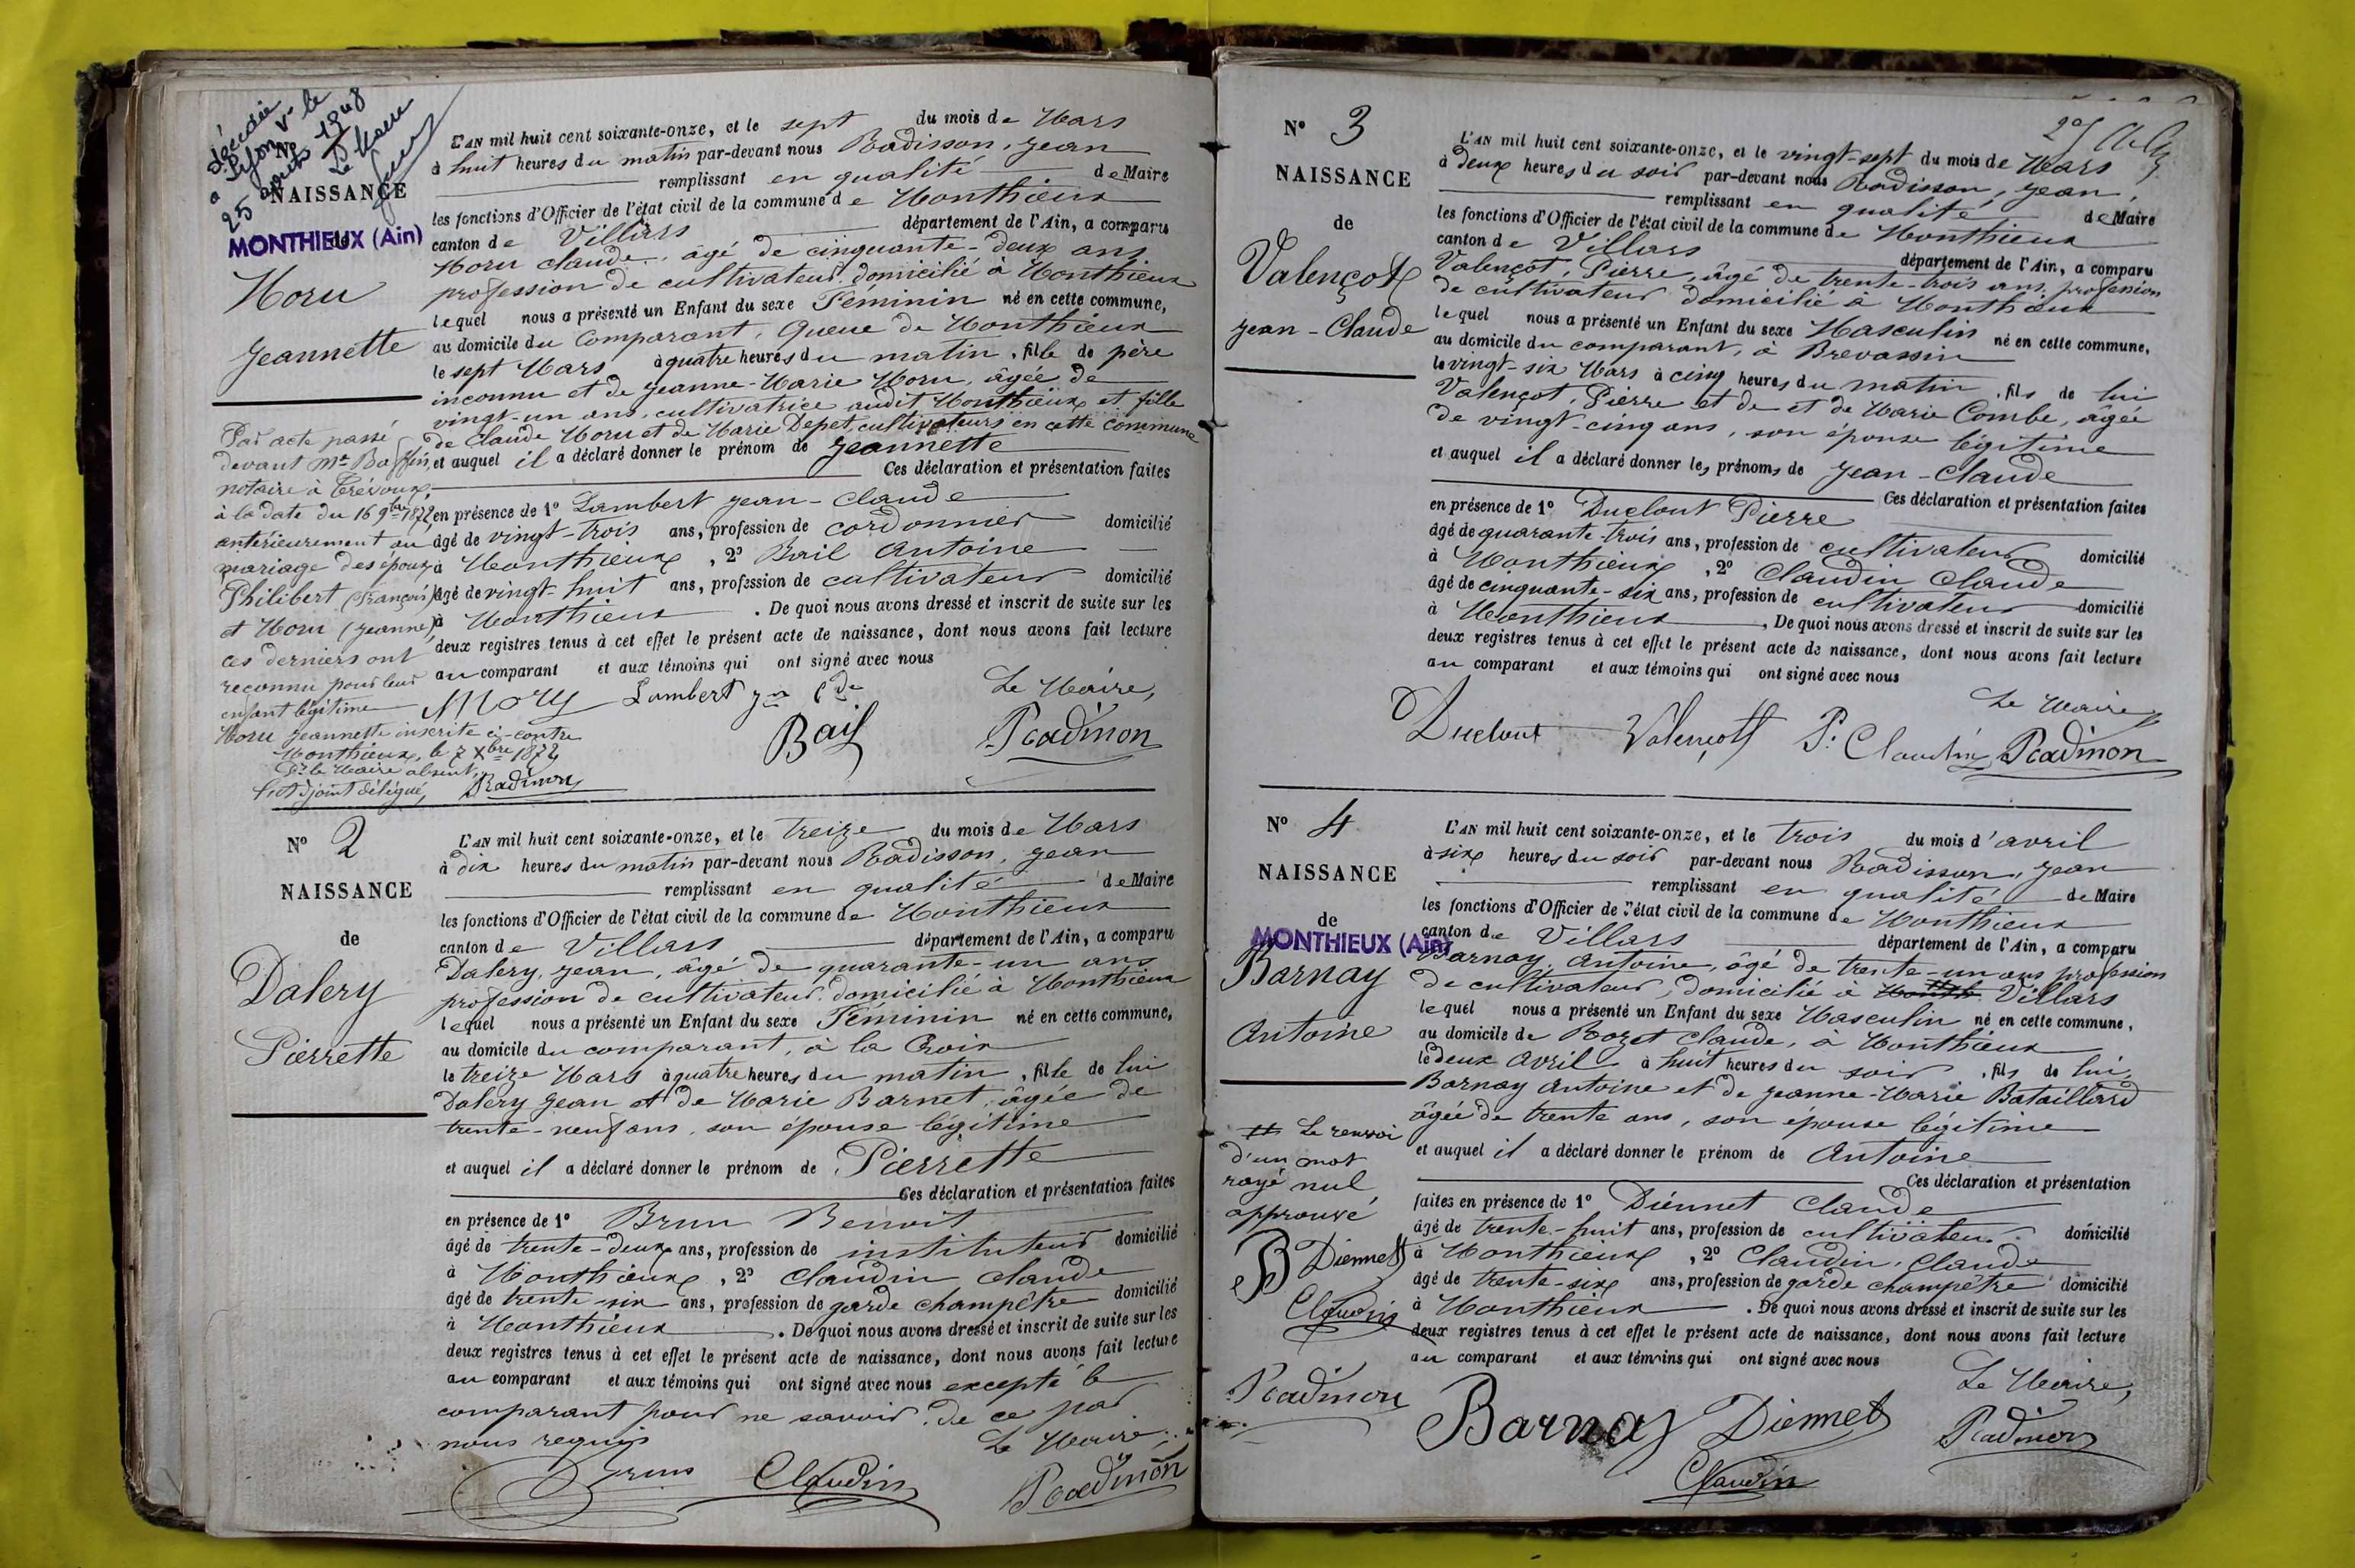 décédée
à Lyon Ve le
25 août 1948
Le Maire
No
NAISSANCE
de
MONTHIEUX (Ain)
Moru
Jeannette
L'AN mil huit cent soixante-onze, et le sept du mois de Mars
à huit heures du matin par-devant nous Radisson, Jean
remplissant en qualité de Maire
les fonctions d'Officier de l'état civil de la commune de Monthieux
canton de Villars département de l'Ain, a comparu
Moru Claude, âgé de cinquante-deux ans
profession de cultivateur domicilié à Monthieux
lequel nous a présenté un Enfant du sexe Féminin né en cette commune,
au domicile du Comparant, Queue de Monthieux
le sept Mars à quatre heures du matin, fille de père
inconnu et de Jeanne-Marie Moru, âgée de
vingt-un ans, cultivatrice audit Monthieux et fille
de Claude Moru et de Marie Depet, cultivateurs en cette commune
et auquel il a déclaré donner le prénom de Jeannette
Ces déclaration et présentation faites
en présence de 1o Lambert Jean-Claude
âgé de vingt-trois ans, profession de cordonnier domicilié
à Monthieux, 2o Bail Antoine
âgé de vingt-huit ans, profession de cultivateur domicilié
à Monthieux. De quoi nous avons dressé et inscrit de suite sur les
deux registres tenus à cet effet le présent acte de naissance, dont nous avons fait lecture
au comparant et aux témoins qui ont signé avec nous
Le Maire,
Moru Lambert Jn Cde
Bail Radisson
Par acte passé
devant Me Baffin,
notaire à Trévoux,
à la date du 16 9bre 1872,
antérieurement au
mariage des époux
Philibert (François)
et Moru (Jeanne),
ces derniers ont
reconnu pour leur
enfant légitime
Moru Jeannette inscrite ci-contre
Monthieux, le 7 Xbre 1872
Pr le Maire absent,
l'adjoint délégué, Radisson
No 2
NAISSANCE
de
Dalery
Pierrette
L'AN mil huit cent soixante-onze, et le treize du mois de Mars
à dix heures du matin par-devant nous Radisson, Jean
remplissant en qualité de Maire
les fonctions d'Officier de l'état civil de la commune de Monthieux
canton de Villars département de l'Ain, a comparu
Dalery, Jean, âgé de quarante-un ans
profession de cultivateur domicilié à Monthieux
lequel nous a présenté un Enfant du sexe Féminin né en cette commune,
au domicile du comparant, à la Croix
le treize Mars à quatre heures du matin, fille de lui
Dalery Jean et de Marie Barnet, âgée de
trente-neuf ans, son épouse légitime
et auquel il a déclaré donner le prénom de Pierrette
Ces déclaration et présentation faites
en présence de 1o Brun Benoit
âgé de trente-deux ans, profession de instituteur domicilié
à Monthieux, 2o Claudin Claude
âgé de trente-six ans, profession de garde champêtre domicilié
à Monthieux. De quoi nous avons dressé et inscrit de suite sur les
deux registres tenus à cet effet le présent acte de naissance, dont nous avons fait lecture
au comparant et aux témoins qui ont signé avec nous excepté le
comparant pour ne savoir, de ce par
nous requis Le Maire,
Brun Claudin Radisson
No 3
NAISSANCE
de
Valençot
Jean-Claude
L'AN mil huit cent soixante-onze, et le vingt-sept du mois de Mars
à deux heures du soir par-devant nous Radisson, Jean
remplissant en qualité de Maire
les fonctions d'Officier de l'état civil de la commune de Monthieux
canton de Villars département de l'Ain, a comparu
Valençot, Pierre, âgé de trente-trois ans, profession
de cultivateur domicilié à Monthieux
lequel nous a présenté un Enfant du sexe Masculin né en cette commune,
au domicile du comparant, à Brevassin
le vingt-six Mars à cinq heures du matin, fils de lui
Valençot, Pierre et de et de Marie Combe, âgée
de vingt-cinq ans, son épouse légitime
et auquel il a déclaré donner les prénoms de Jean-Claude
Ces déclaration et présentation faites
en présence de 1o Duclout Pierre
âgé de quarante-trois ans, profession de cultivateur domicilié
à Monthieux, 2o Claudin Claude
âgé de cinquante-six ans, profession de cultivateur domicilié
à Monthieux, De quoi nous avons dressé et inscrit de suite sur les
deux registres tenus à cet effet le présent acte de naissance, dont nous avons fait lecture
au comparant et aux témoins qui ont signé avec nous
Le Maire
Duclout Valençot P. Claudin Radisson
No 4
NAISSANCE
de
MONTHIEUX (Ain)
Barnay
Antoine
L'AN mil huit cent soixante-onze, et le trois du mois d'avril
à six heures du soir par-devant nous Radisson, Jean
remplissant en qualité de Maire
les fonctions d'Officier de l'état civil de la commune de Monthieux
canton de Villars département de l'Ain, a comparu
Barnay, Antoine, âgé de trente-un ans profession
de cultivateur, domicilié à Month Villars
lequel nous a présenté un Enfant du sexe Masculin né en cette commune,
au domicile de Bozet Claude, à Monthieux
le deux avril à huit heures du soir, fils de lui,
Barnay Antoine et de Jeanne-Marie Bataillard
âgée de trente ans, son épouse légitime
et auquel il a déclaré donner le prénom de Antoine
Ces déclaration et présentation
faites en présence de 1o Diennet Claude
âgé de trente-huit ans, profession de cultivateur domicilié
à Monthieux, 2o Claudin, Claude
âgé de trente-six ans, profession de garde champêtre domicilié
à Monthieux. De quoi nous avons dressé et inscrit de suite sur les
deux registres tenus à cet effet le présent acte de naissance, dont nous avons fait lecture
au comparant et aux témoins qui ont signé avec nous
Le Maire,
Barnay Diennet Radisson
Claudin
Le renvoi
d'un mot
rayé nul
approuvé
B Diennet
Claudin
Radisson